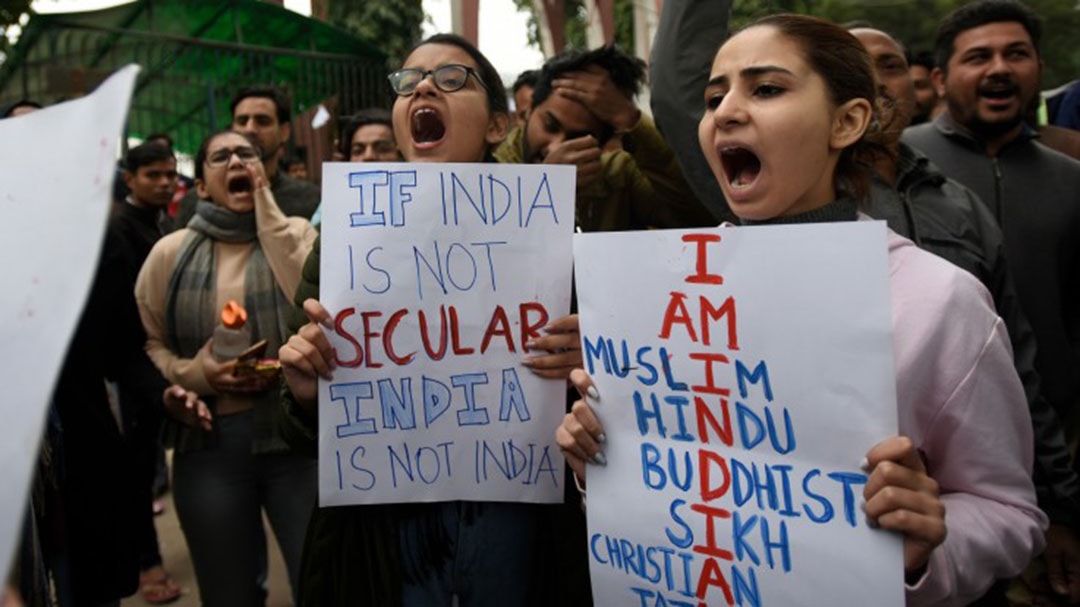 IF INDIA
IS NOT
SECULAR
INDIA
IS NOT INDIA
I
AM
MUSLIM
HINDU
BUDDHIST
SIKH
CHRISTIAN